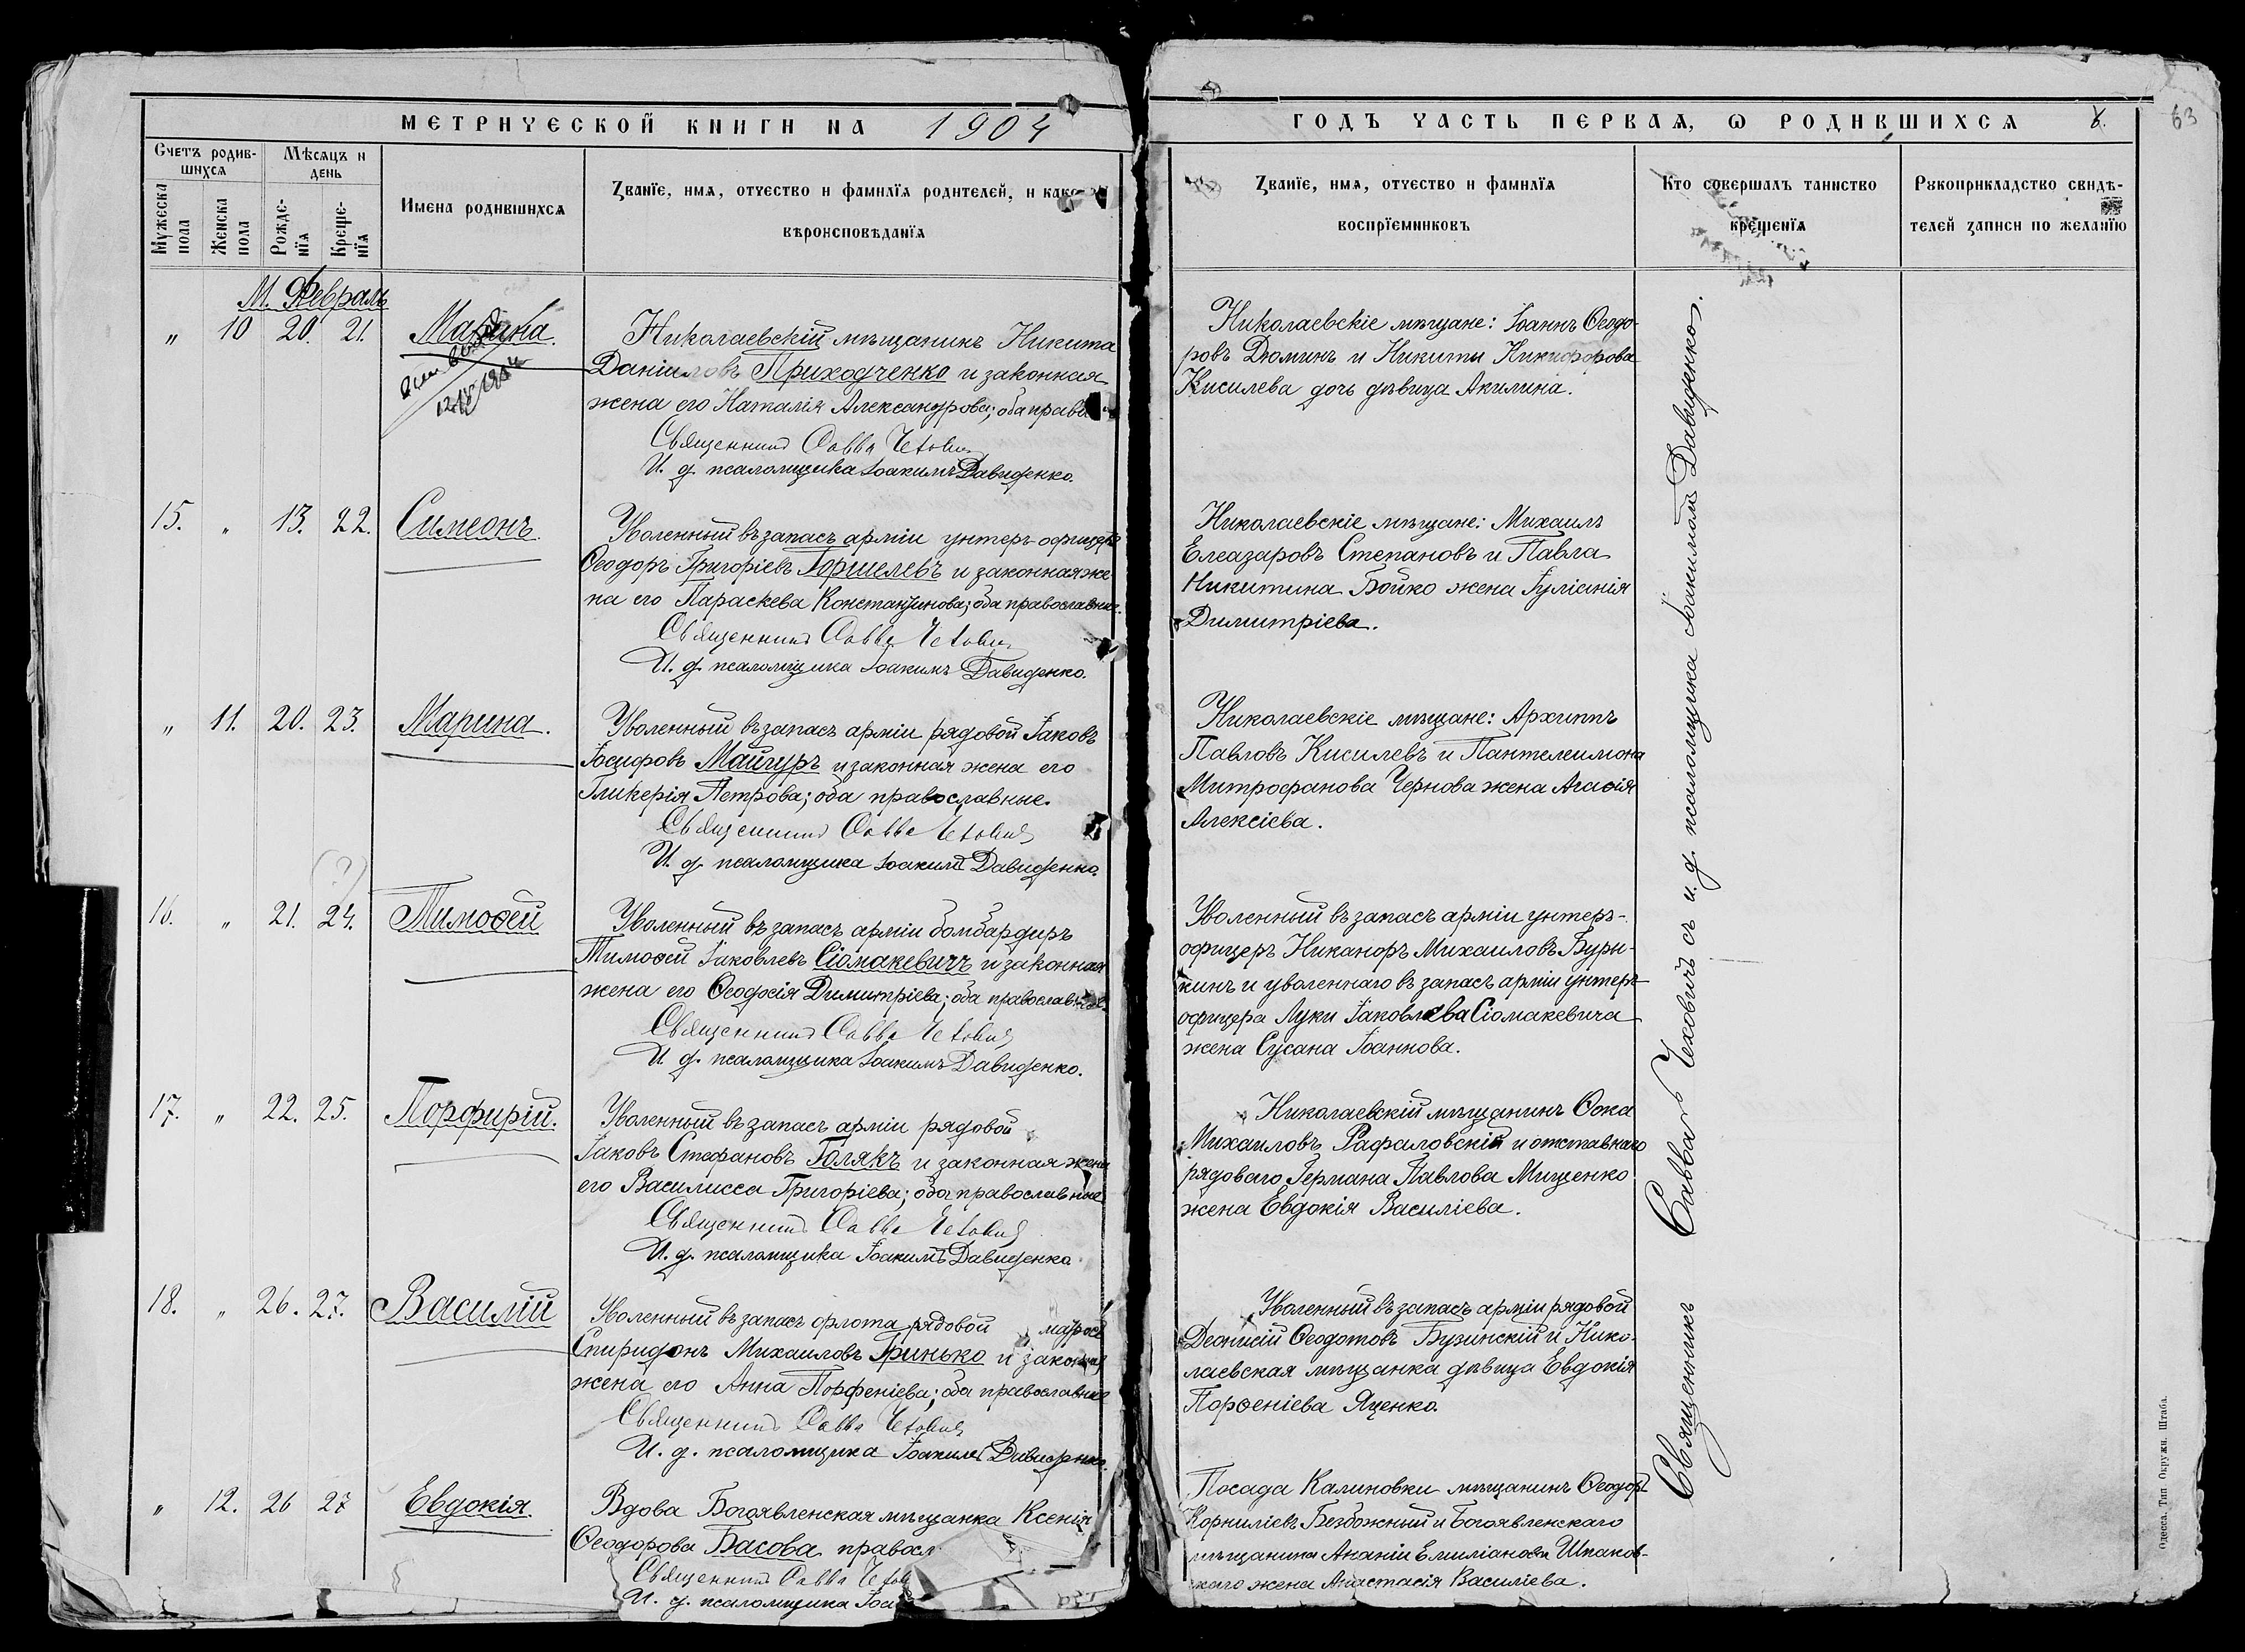 МЕТРИЧЕСКОЙ КНИГИ НА 1904
Счетъ родив-
шихся
Мѣсяцъ и
день
Мужеска
пола
Женска
пола
Рожде-
нїя
Креще-
нїя
Имена родившихся
Званїе, имя, отчество и фамилїя родителей, и како
вѣроисповѣданїя
М. Февраль
" 10 20. 21. Марина.
12/IV 1954
Николаевскій мѣщанинъ Никита
Даніиловъ Приходченко и законная
жена его Наталія Александрова; оба прав
Священникъ Савва Чеховичъ
И. д. псаломщика Іоакимъ Давиденко.
15. " 13. 22. Симеонъ.
Уволенный въ запасъ арміи унтеръ-офицеръ
Ѳеодоръ Григоріевъ Горшелевъ и законная же-
на его Параскева Константинова; оба православные.
Священникъ Савва Чеховичъ
И. д. псаломщика Іоакимъ Давиденко.
" 11. 20. 23. Марина.
Уволенный въ запасъ арміи рядовой Іаковъ
Іосифовъ Майгуръ и законная жена его
Гликерія Петрова; оба православные.
Священникъ Савва Чеховичъ
И. д. псаломщика Іоакимъ Давиденко.
(?)
16. " 21. 24. Тимоѳей
Уволенный въ запасъ арміи бомбардиръ
Тимоѳей Іаковлевъ Сіомакевичъ и законная
жена его Ѳеодосія Димитріева; оба православные.
Священникъ Савва Чеховичъ
И. д. псаломщика Іоакимъ Давиденко.
17. " 22. 25. Порфирій.
Уволенный въ запасъ арміи рядовой
Іаковъ Стефановъ Голякъ и законная жена
его Василисса Григоріева; оба православные
Священникъ Савва Чеховичъ
И. д. псаломщика Іоакимъ Давиденко.
18. " 26. 27. Василій
Уволенный въ запасъ флота рядовой матросъ
Спиридонъ Михаиловъ Гринько и законная
жена его Анна Порфеніева; оба православные
Священникъ Савва Чеховичъ
И. д. псаломщика Іоакимъ Давиденко.
" 12. 26 27 Евдокія.
Вдова Богоявленская мѣщанка Ксенія
Ѳеодорова Басова правосл.
Священникъ Савва Чехов
И. д. псаломщика Іоа
ГОДЪ ЧАСТЬ ПЕРВАЯ, Ѡ РОДИВШИХСЯ 6. 63
Званїе, имя, отчество и фамилїя
воспрїемниковъ
Кто совершалъ таинство
крещенїя
Рукоприкладство свидѣ-
телей записи по желанїю
Николаевскіе мѣщане: Іоаннъ Ѳеодо-
ровъ Дюминъ и Никиты Никифорова
Кисилева дочь дѣвица Акилина.
Николаевскіе мѣщане: Михаилъ
Елеазаровъ Степановъ и Павла
Никитина Бойко жена Іуліанія
Димитріева.
Николаевскіе мѣщане: Архиппъ
Павловъ Кисилевъ и Пантелеимона
Митрофанова Чернова жена Агаѳія
Алексіева.
Уволенный въ запасъ арміи унтеръ-
офицеръ Никаноръ Михаиловъ Буры-
кинъ и уволеннаго въ запасъ арміи унтеръ-
офицера Луки Іаковлева Сіомакевича
жена Сусана Іоаннова.
Николаевскій мѣщанинъ Ѳока
Михаиловъ Рафаловскій и отставнаго
рядоваго Германа Павлова Мищенко
жена Евдокія Василіева.
Уволенный въ запасъ арміи рядовой
Деонисій Ѳеодотовъ Бузинскій и Нико-
лаевская мѣщанка дѣвица Евдокія
Порѳеніева Яценко.
Посада Калиновки мѣщанинъ Ѳеодоръ
Корниліевъ Безбожный и Богоявленскаго
мѣщанина Ананіи Емиліанова Шпаков-
скаго жена Анастасія Василіева.
Священникъ Савва Чеховичъ съ и. д. псаломщика Іоакимомъ Давиденко.
Одесса. Тип. Окружн. Штаба.